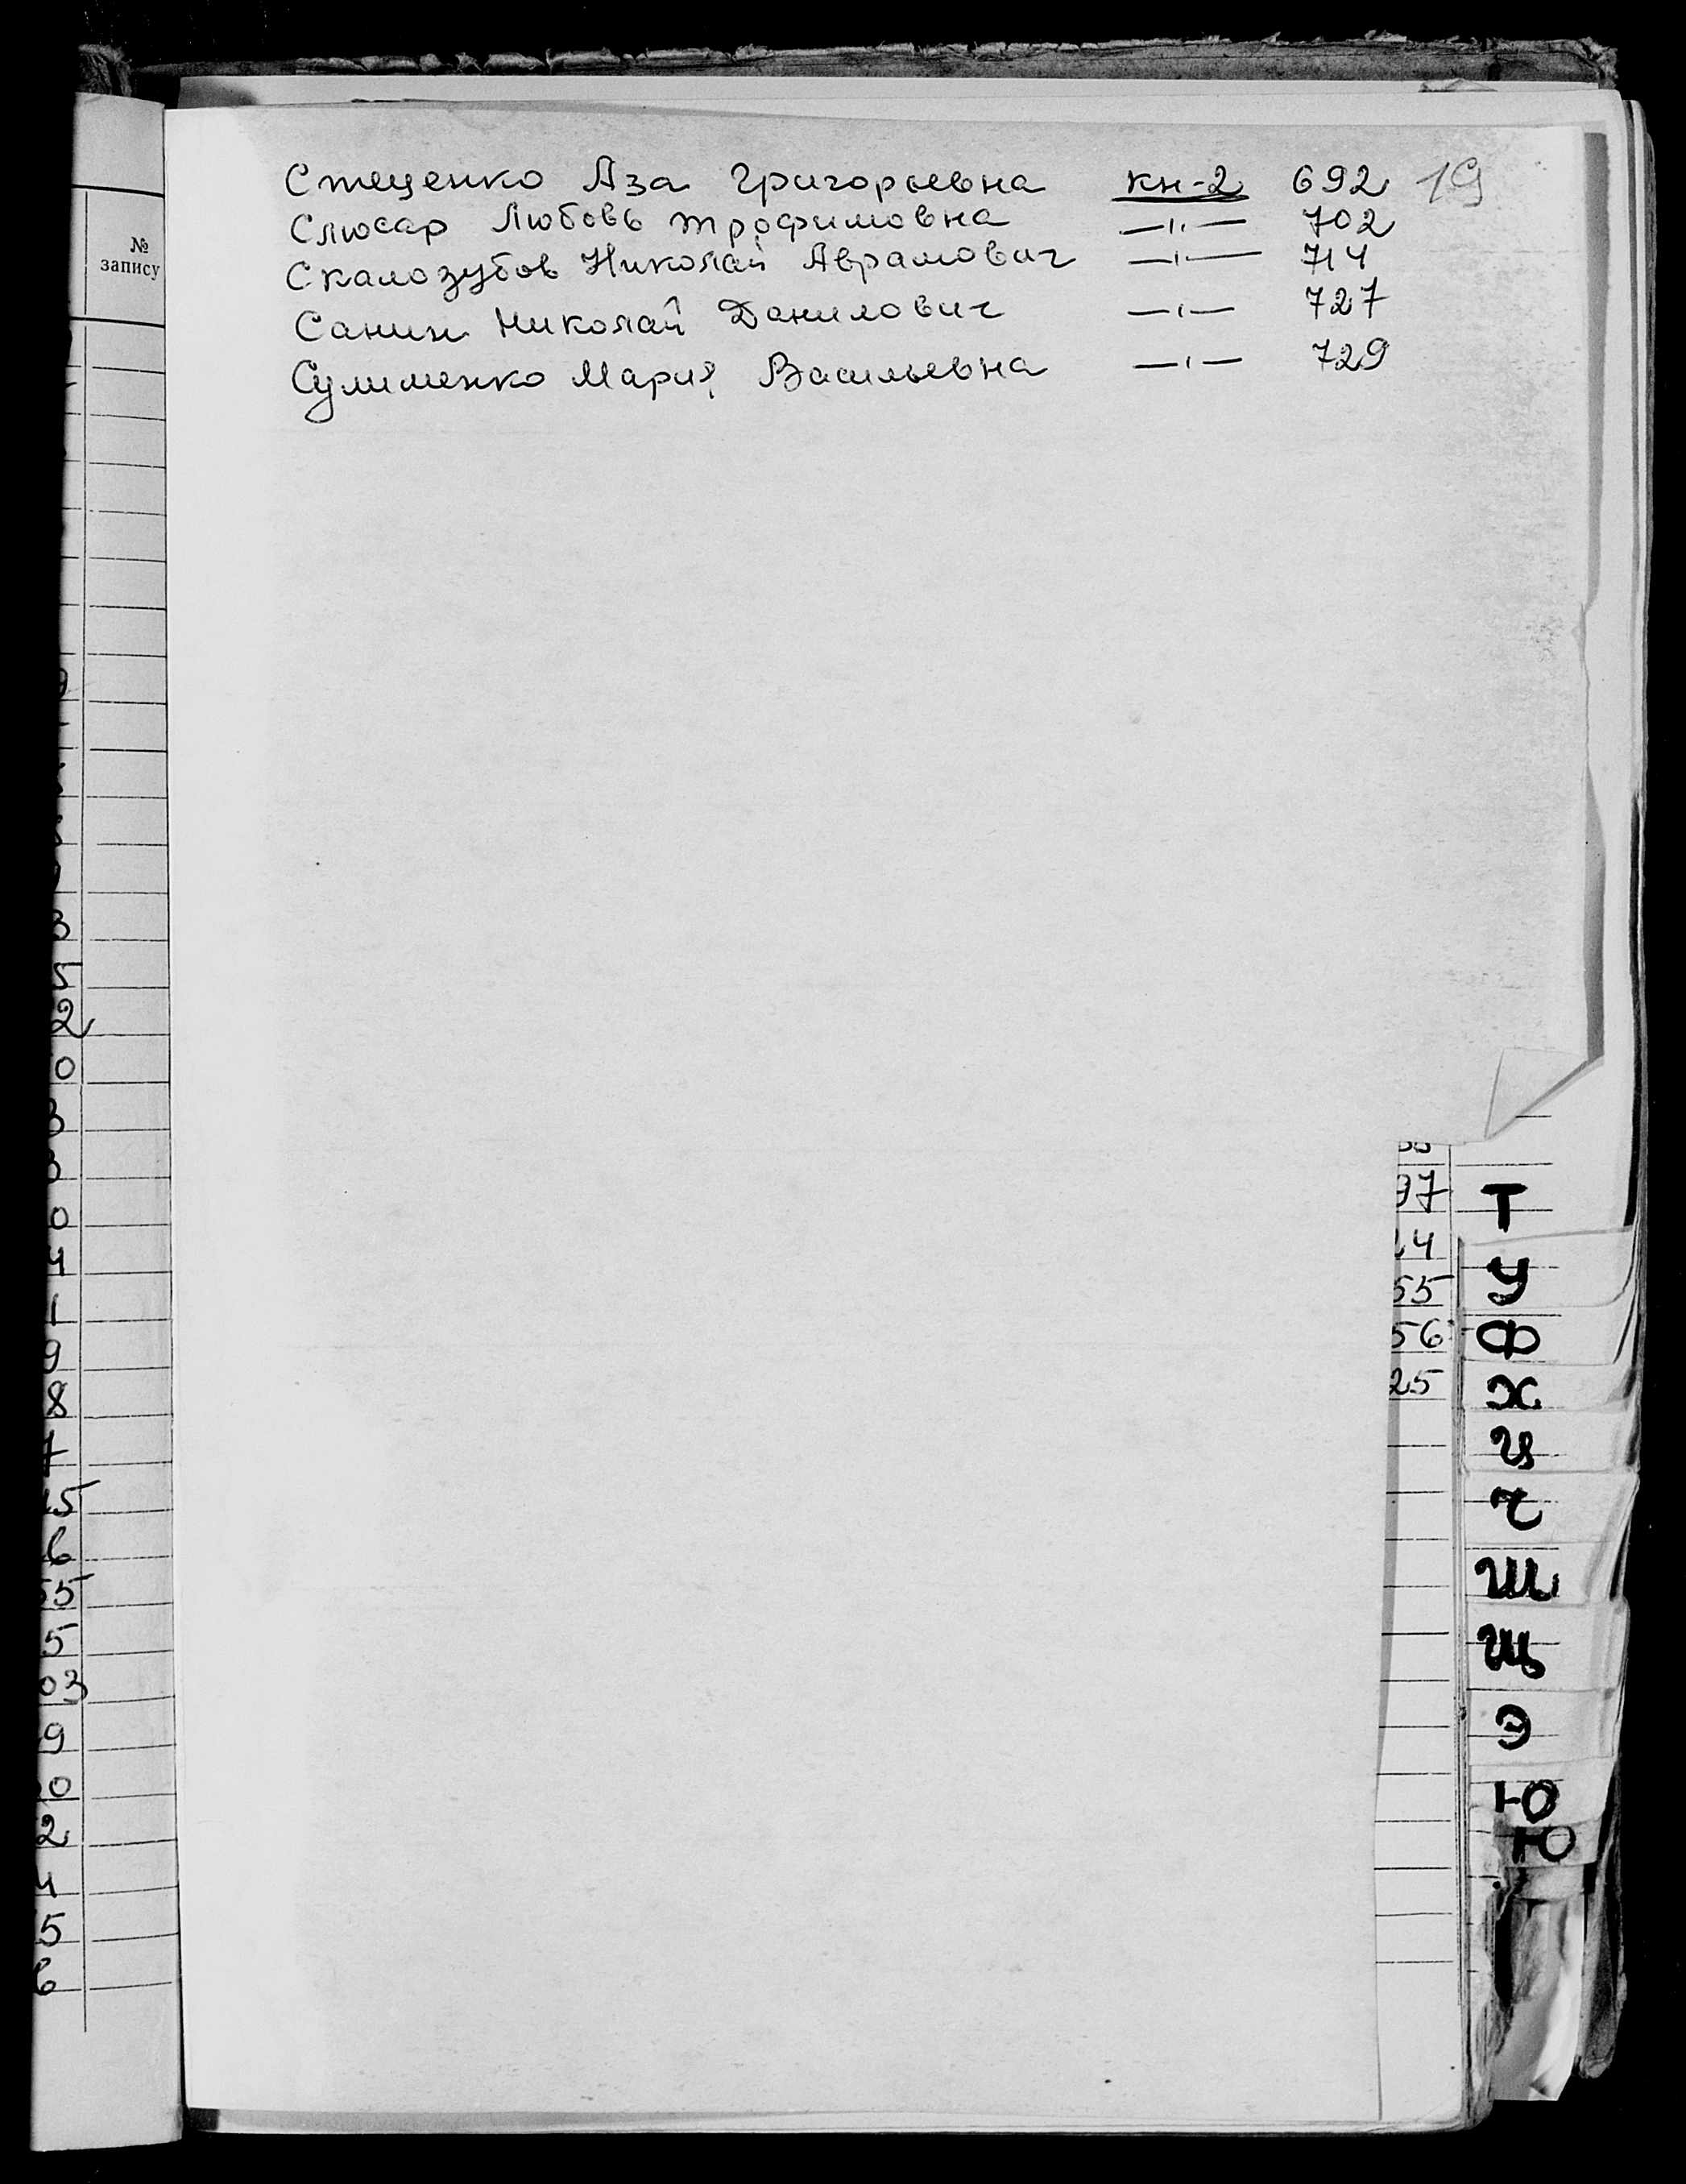 Стеценко Аза Григорьевна кн-2 692 19
Слюсар Любовь Трофимовна —„— 702
Скалозубов Николай Аврамович —„— 714
Санин Николай Данилович —„— 727
Сулименко Мария Васильевна —„— 729
№
запису
2
0
8
5
6
5
5
03
9
0
2
4
5
6
97
24
55
56
25
Т
У
Ф
Х
Ц
Ч
Ш
Щ
Э
Ю
Ю